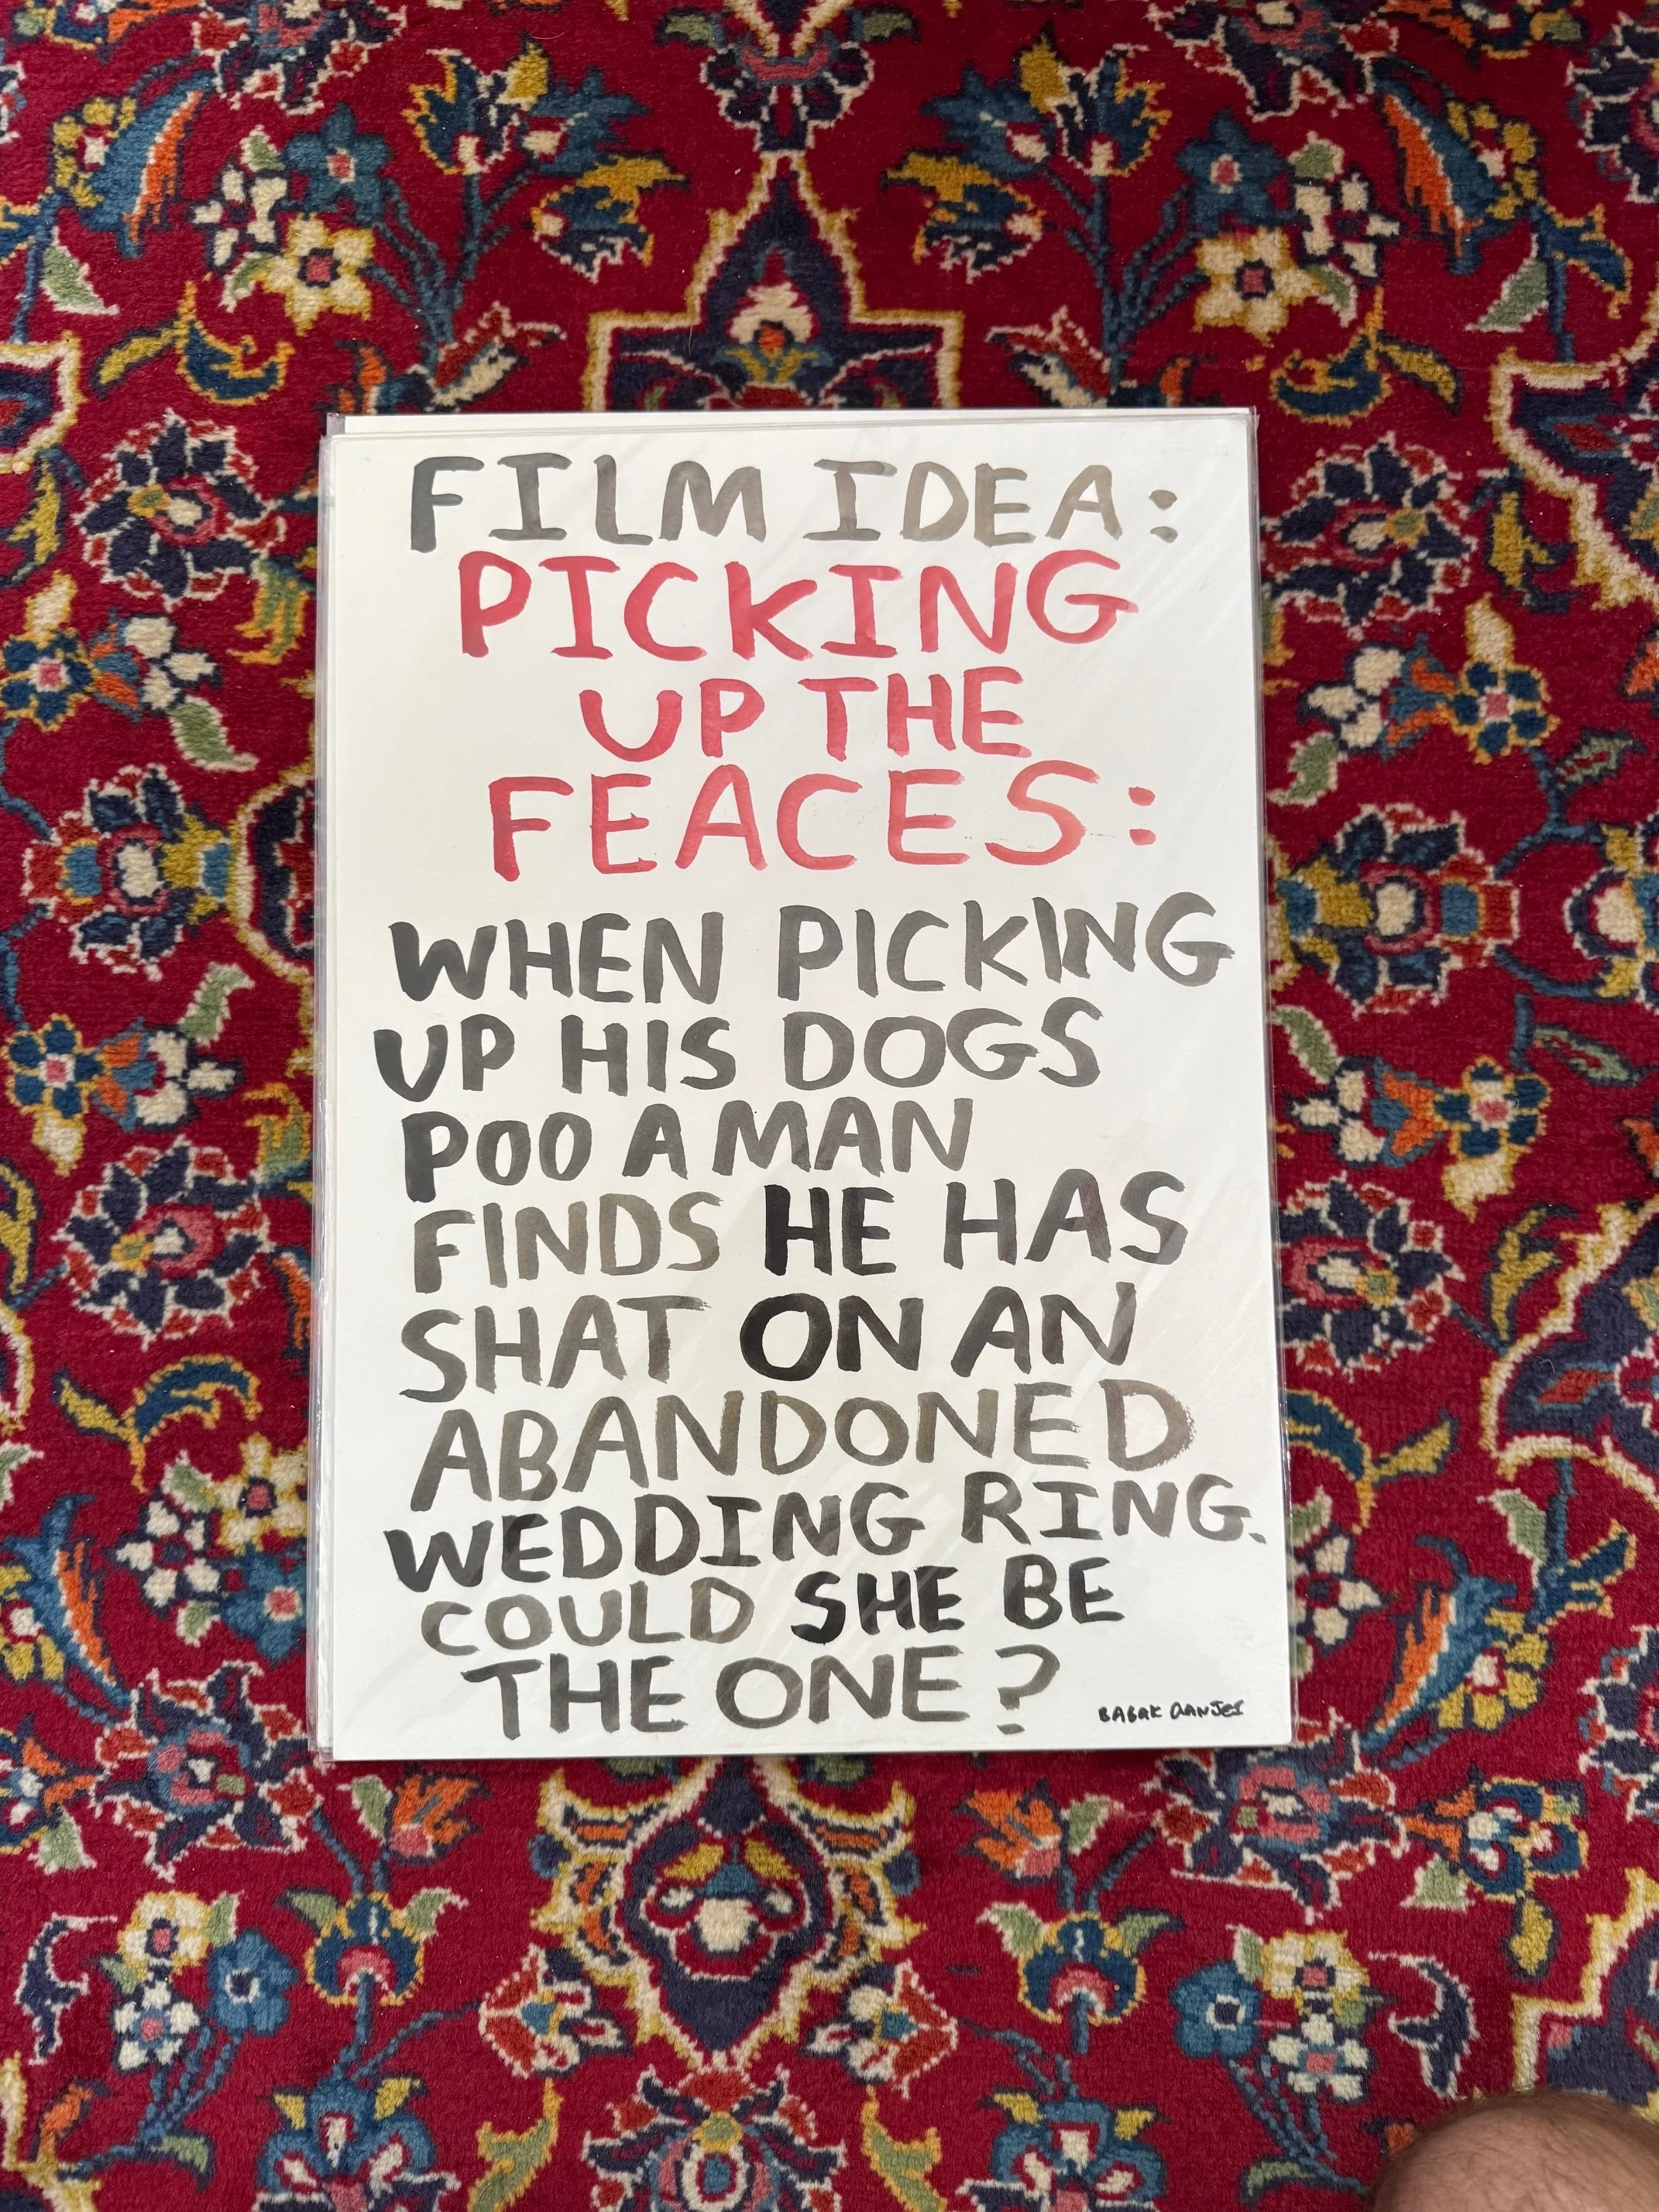 FILM IDEA:
PICKING
UP THE
FEACES:
WHEN PICKING
UP HIS DOGS
POO A MAN
FINDS HE HAS
SHAT ON AN
ABANDONED
WEDDING RING.
COULD SHE BE
THE ONE?
BABAK GANJEI